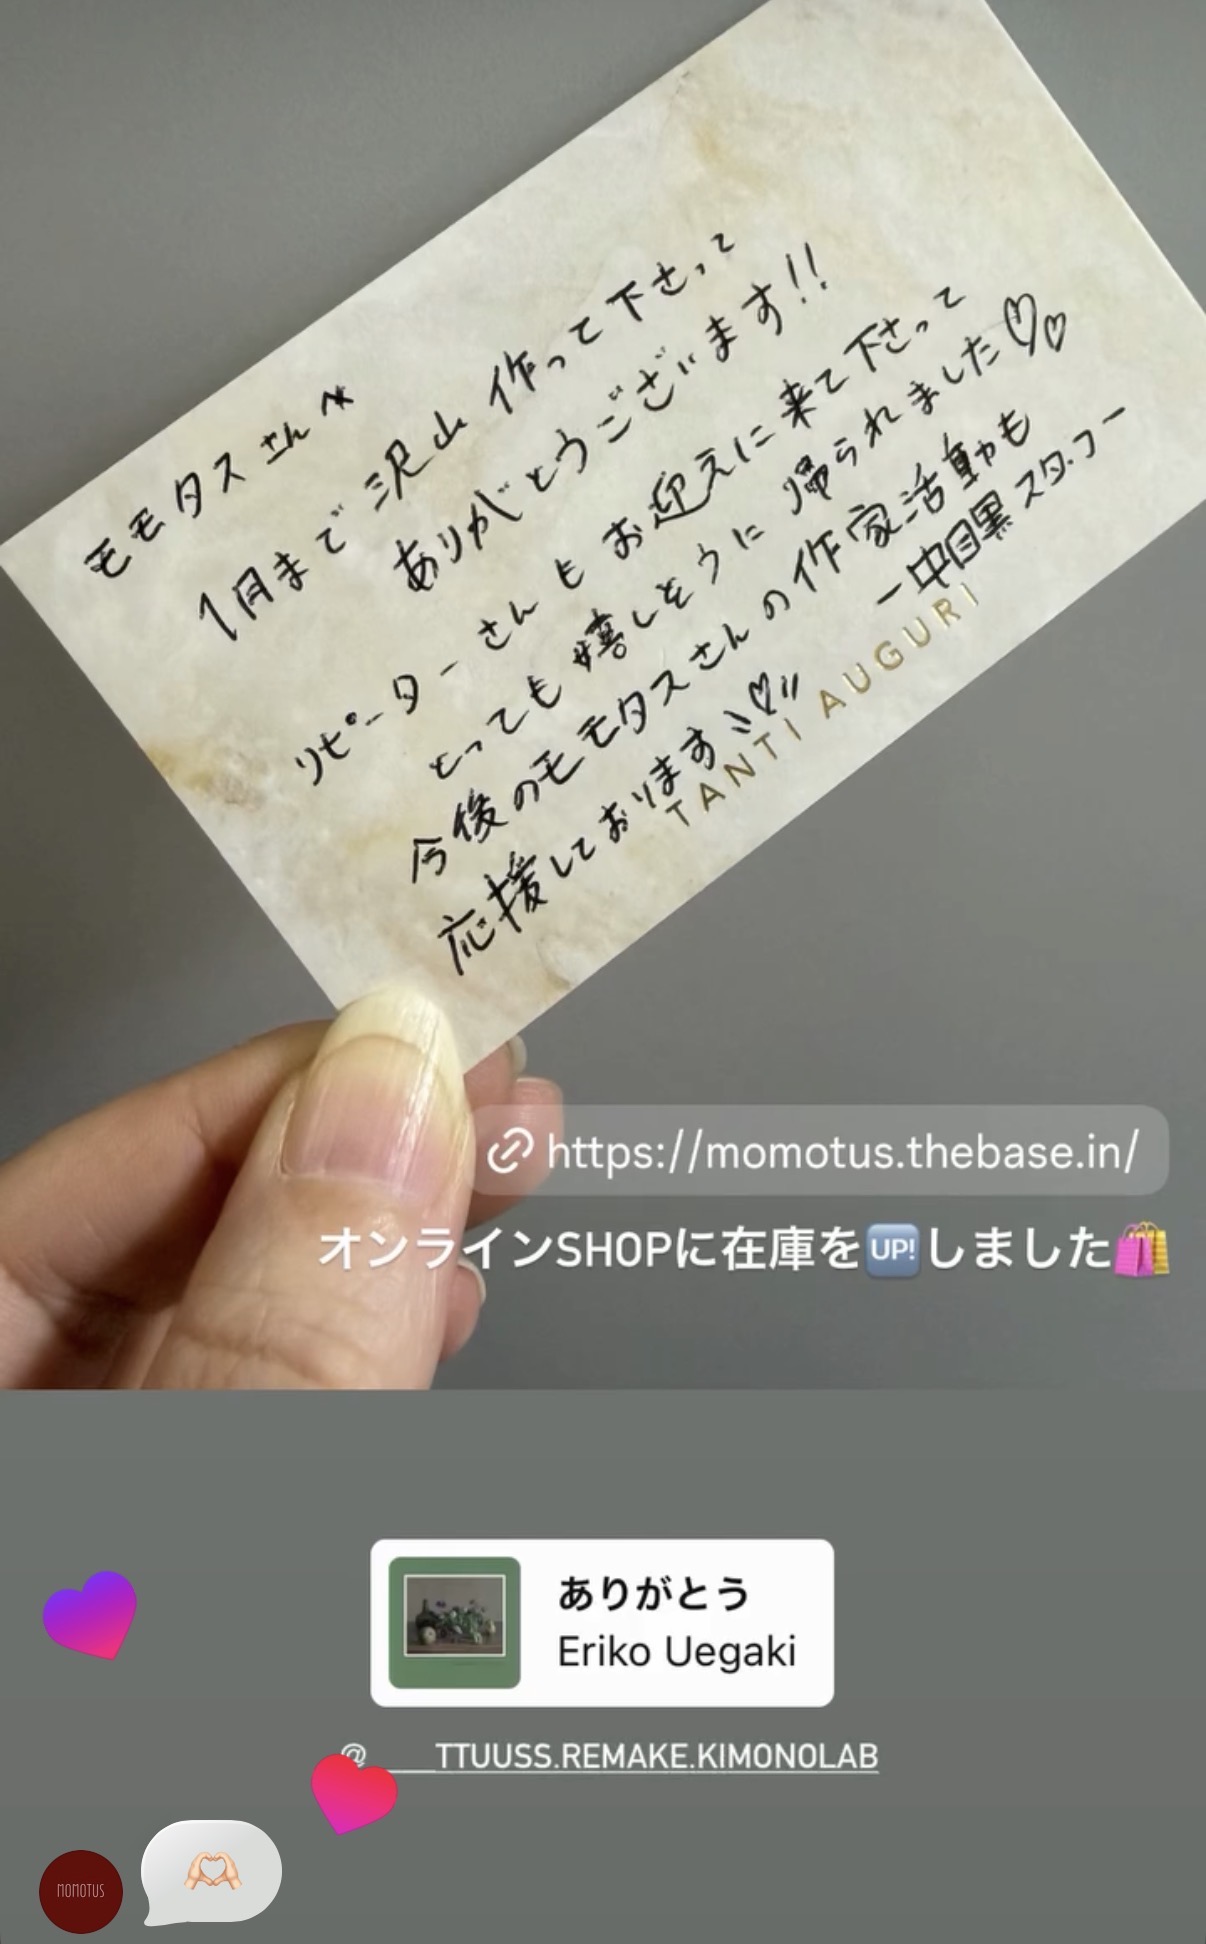 モモタスさんへ
1月まで沢山作って下さって
ありがとうございます!!
リピーターさんもお迎えに来て下さって
とっても嬉しそうに帰られました♡♡
今後のモモタスさんの作家活動も
応援しております♡
ー中目黒スタッフー
TANTI AUGURI
https://momotus.thebase.in/
オンラインSHOPに在庫を🆙しました🛍️
ありがとう
Eriko Uegaki
@____TTUUSS.REMAKE.KIMONOLAB
MOMOTUS